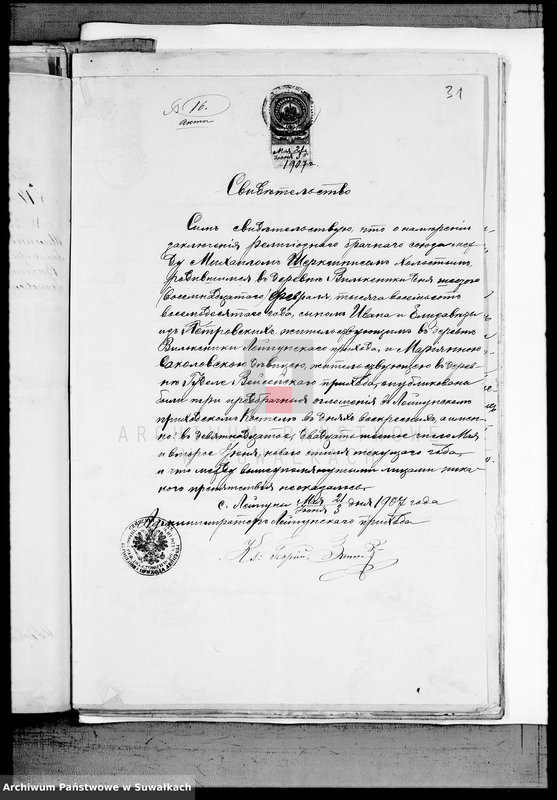 31
16.
Акта
Мая 21/
Іюня 3
1907 г.
Свидѣтельство
Симъ свидѣтельствую, что о намѣреніи
заключенія религіознаго брачнаго союза меж-
ду Михаиломъ холостымъ,
родившимся въ деревнѣ дня
восемнадцатаго Февраля, тысяча восемьсотъ
восемьдесятаго года, сыномъ Ивана и Елизаветы
изъ Петровскихъ, жительствующимъ въ деревнѣ
Лейпунскаго прихода, и Маріянною
Саколовскою дѣвицею, жительствующею въ дерев-
нѣ Вейсейскаго прихода, опубликованы
были три предбрачныя оглашенія въ Лейпунскомъ
приходскомъ Костелѣ въ дняхъ воскресныхъ, а имен-
но въ девятнадцатое, двадцать шестое числа Мая
и второе Іюня, новаго стиля текущаго года,
и что между вышеупомянутыми лицами ника-
кого препятствія не оказалось.
с. Лейпуны Мая 21/Іюня 3 дня 1907 года
Администраторъ Лейпунскаго прихода
Кс: Георгій
ARCHIWUM PAŃSTWOWE
Archiwum Państwowe w Suwałkach